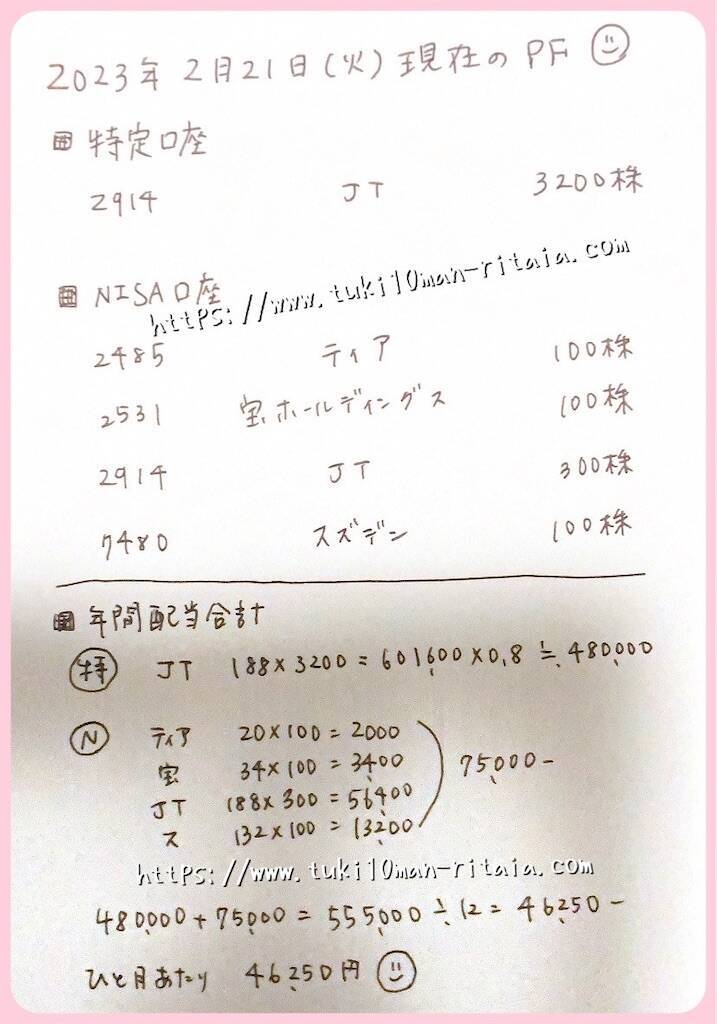 2023年 2月21日(火)現在のPF
特定口座
2914 JT 3200株
NISA口座
https://www.tuki10man-ritaia.com
2485 ティア 100株
2531 宝ホールディングス 100株
2914 JT 300株
7480 スズデン 100株
年間配当合計
特 JT 188×3200=601,600×0.8≒480,000
N ティア 20×100=2000
宝 34×100=3,400
JT 188×300=56,400
ス 132×100=13,200
75,000-
https://www.tuki10man-ritaia.com
480,000+75,000=555,000÷12=46,250-
ひと月あたり 46,250円